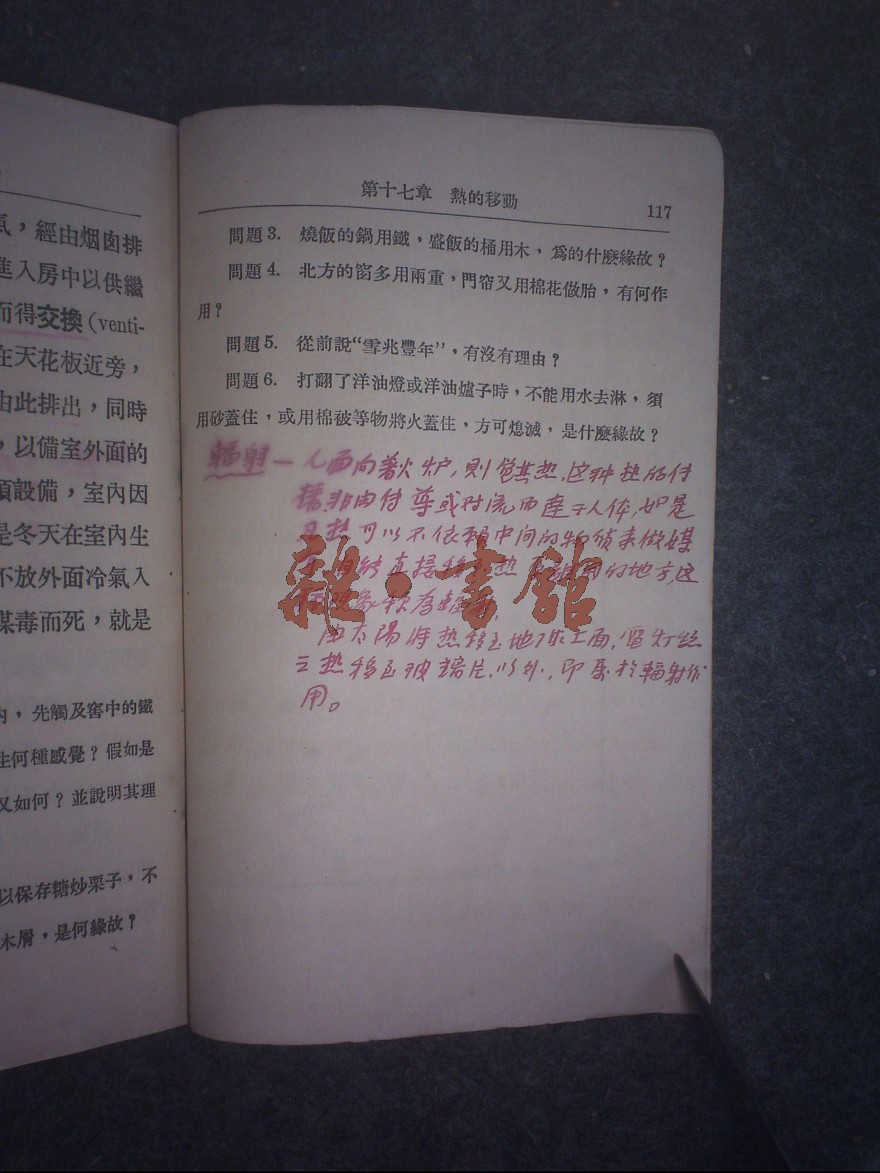 氣，經由烟囱排
進入房中以供繼
而得交換 (venti-
在天花板近旁，
由此排出，同時
，以備室外面的
項設備，室內因
是冬天在室內生
不放外面冷氣入
煤毒而死，就是
內，先觸及窖中的鐵
生何種感覺？假如是
又如何？並說明其理
以保存糖炒栗子，不
木屑，是何緣故？
第十七章　熱的移動
117
問題3.　燒飯的鍋用鐵，盛飯的桶用木，爲的什麽緣故？
問題4.　北方的窗多用兩重，門帘又用棉花做胎，有何作
用？
問題5.　從前說“雪兆豐年”，有沒有理由？
問題6.　打翻了洋油燈或洋油爐子時，不能用水去淋，須
用砂蓋住，或用棉被等物將火蓋住，方可熄滅，是什麽緣故？
輻射—人面向著火炉，則覚其热，这种热的付
播非由付导或对流而达于人体，如是
热可以不依賴中间的物质来做媒
直接移 热 的地方，这
现象称为
由太陽将热移至地球上面，電灯丝
之热移至玻璃片以外，即属於輻射作
用。
雜·書館